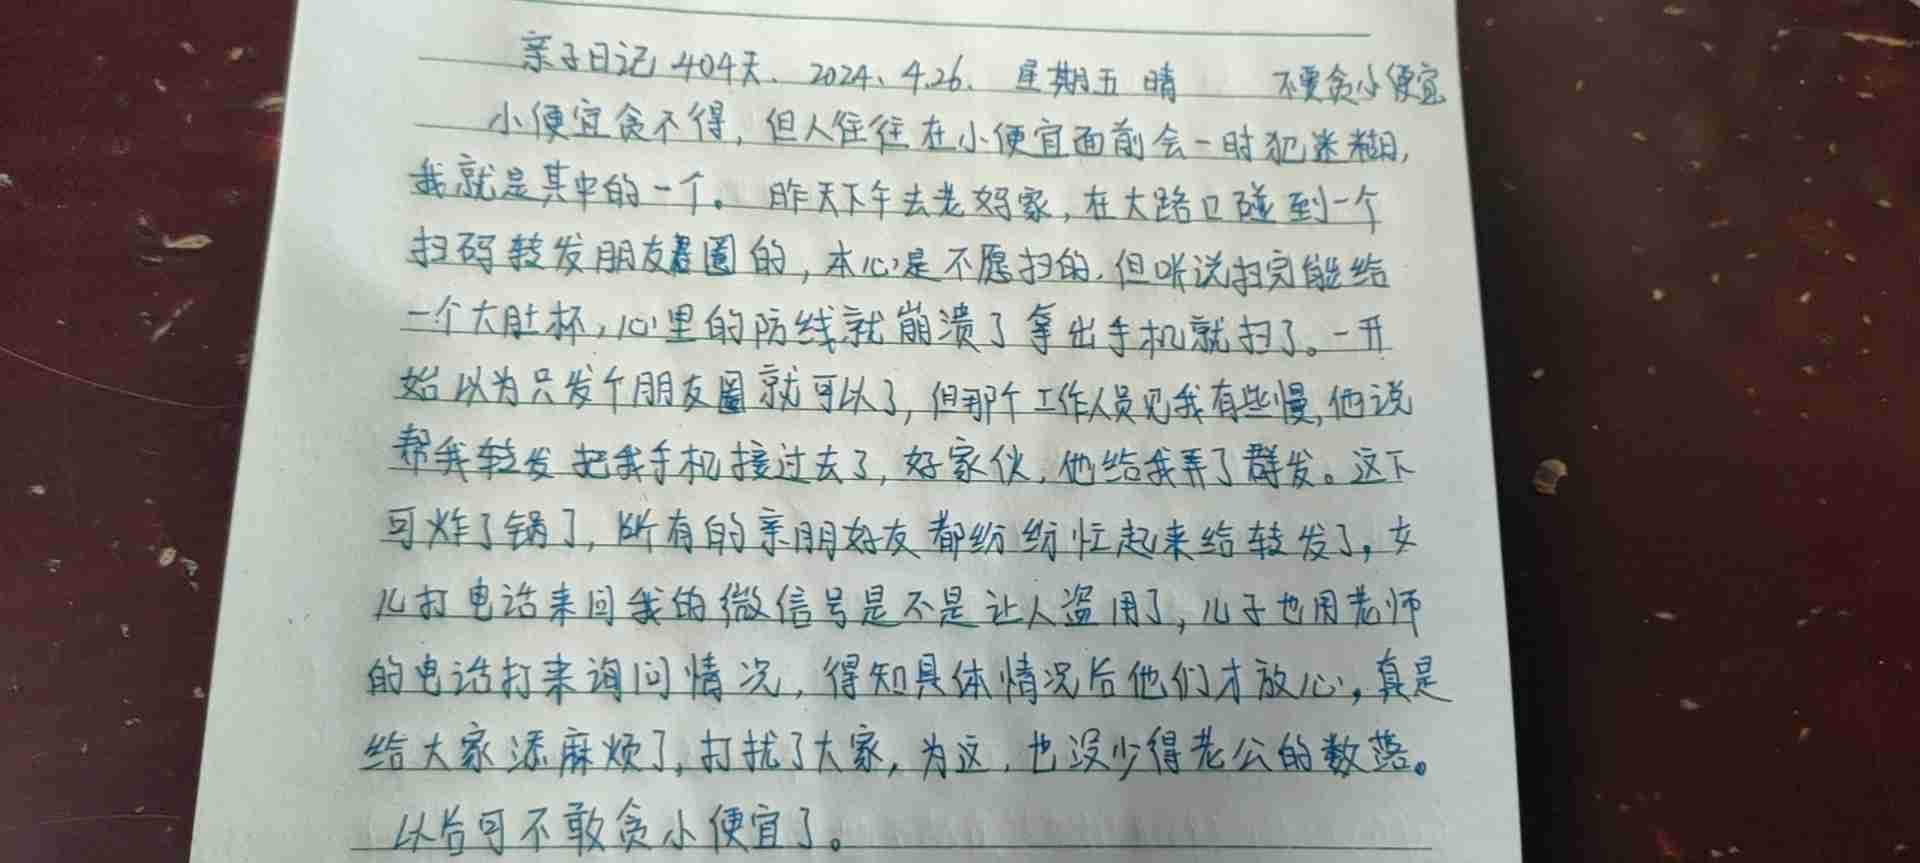 亲子日记404天、2024、4.26、星期五 晴 不要贪小便宜
小便宜贪不得，但人往往在小便宜面前会一时犯迷糊，
我就是其中的一个。昨天下午去老妈家，在大路口碰到一个
扫码转发朋友圈的，本心是不愿扫的，但听说扫完能给
一个大肚杯，心里的防线就崩溃了拿出手机就扫了。一开
始以为只发个朋友圈就可以了，但那个工作人员见我有些慢，他说
帮我转发把我手机接过去了，好家伙，他给我弄了群发。这下
可炸了锅了，所有的亲朋好友都纷纷忙起来给转发了，女
儿打电话来问我的微信号是不是让人盗用了，儿子也用老师
的电话打来询问情况，得知具体情况后他们才放心，真是
给大家添麻烦了，打扰了大家，为这，也没少得老公的数落。
以后可不敢贪小便宜了。